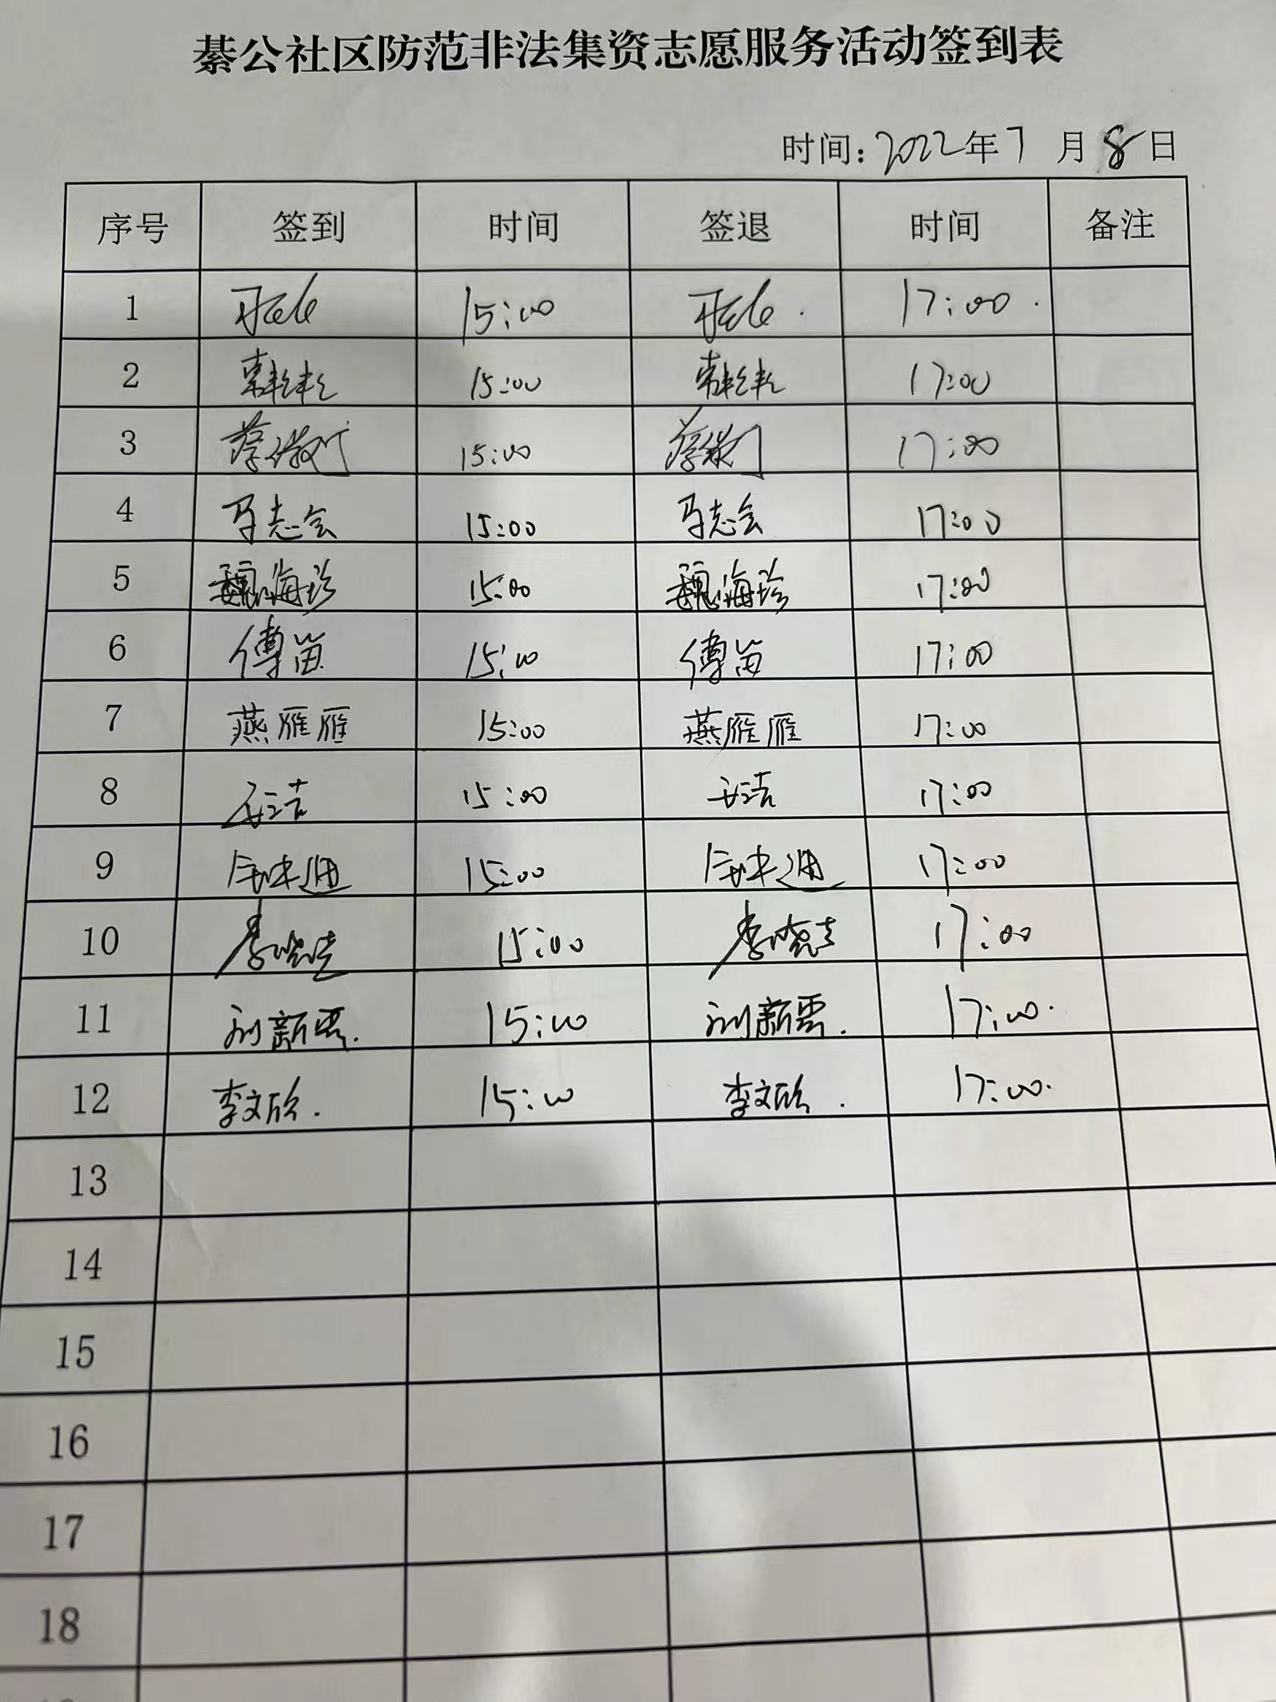 綦公社区防范非法集资志愿服务活动签到表
时间：2022年7月8日
序号 签到 时间 签退 时间 备注
1 15:00 17:00
2 15:00 17:00
3 15:00 17:00
4 马志会 15:00 马志会 17:00
5 魏海珍 15:00 魏海珍 17:00
6 傅笛 15:00 傅笛 17:00
7 燕雁雁 15:00 燕雁雁 17:00
8 15:00 17:00
9 15:00 17:00
10 15:00 17:00
11 15:00 17:00
12 李文欣 15:00 李文欣 17:00
13
14
15
16
17
18